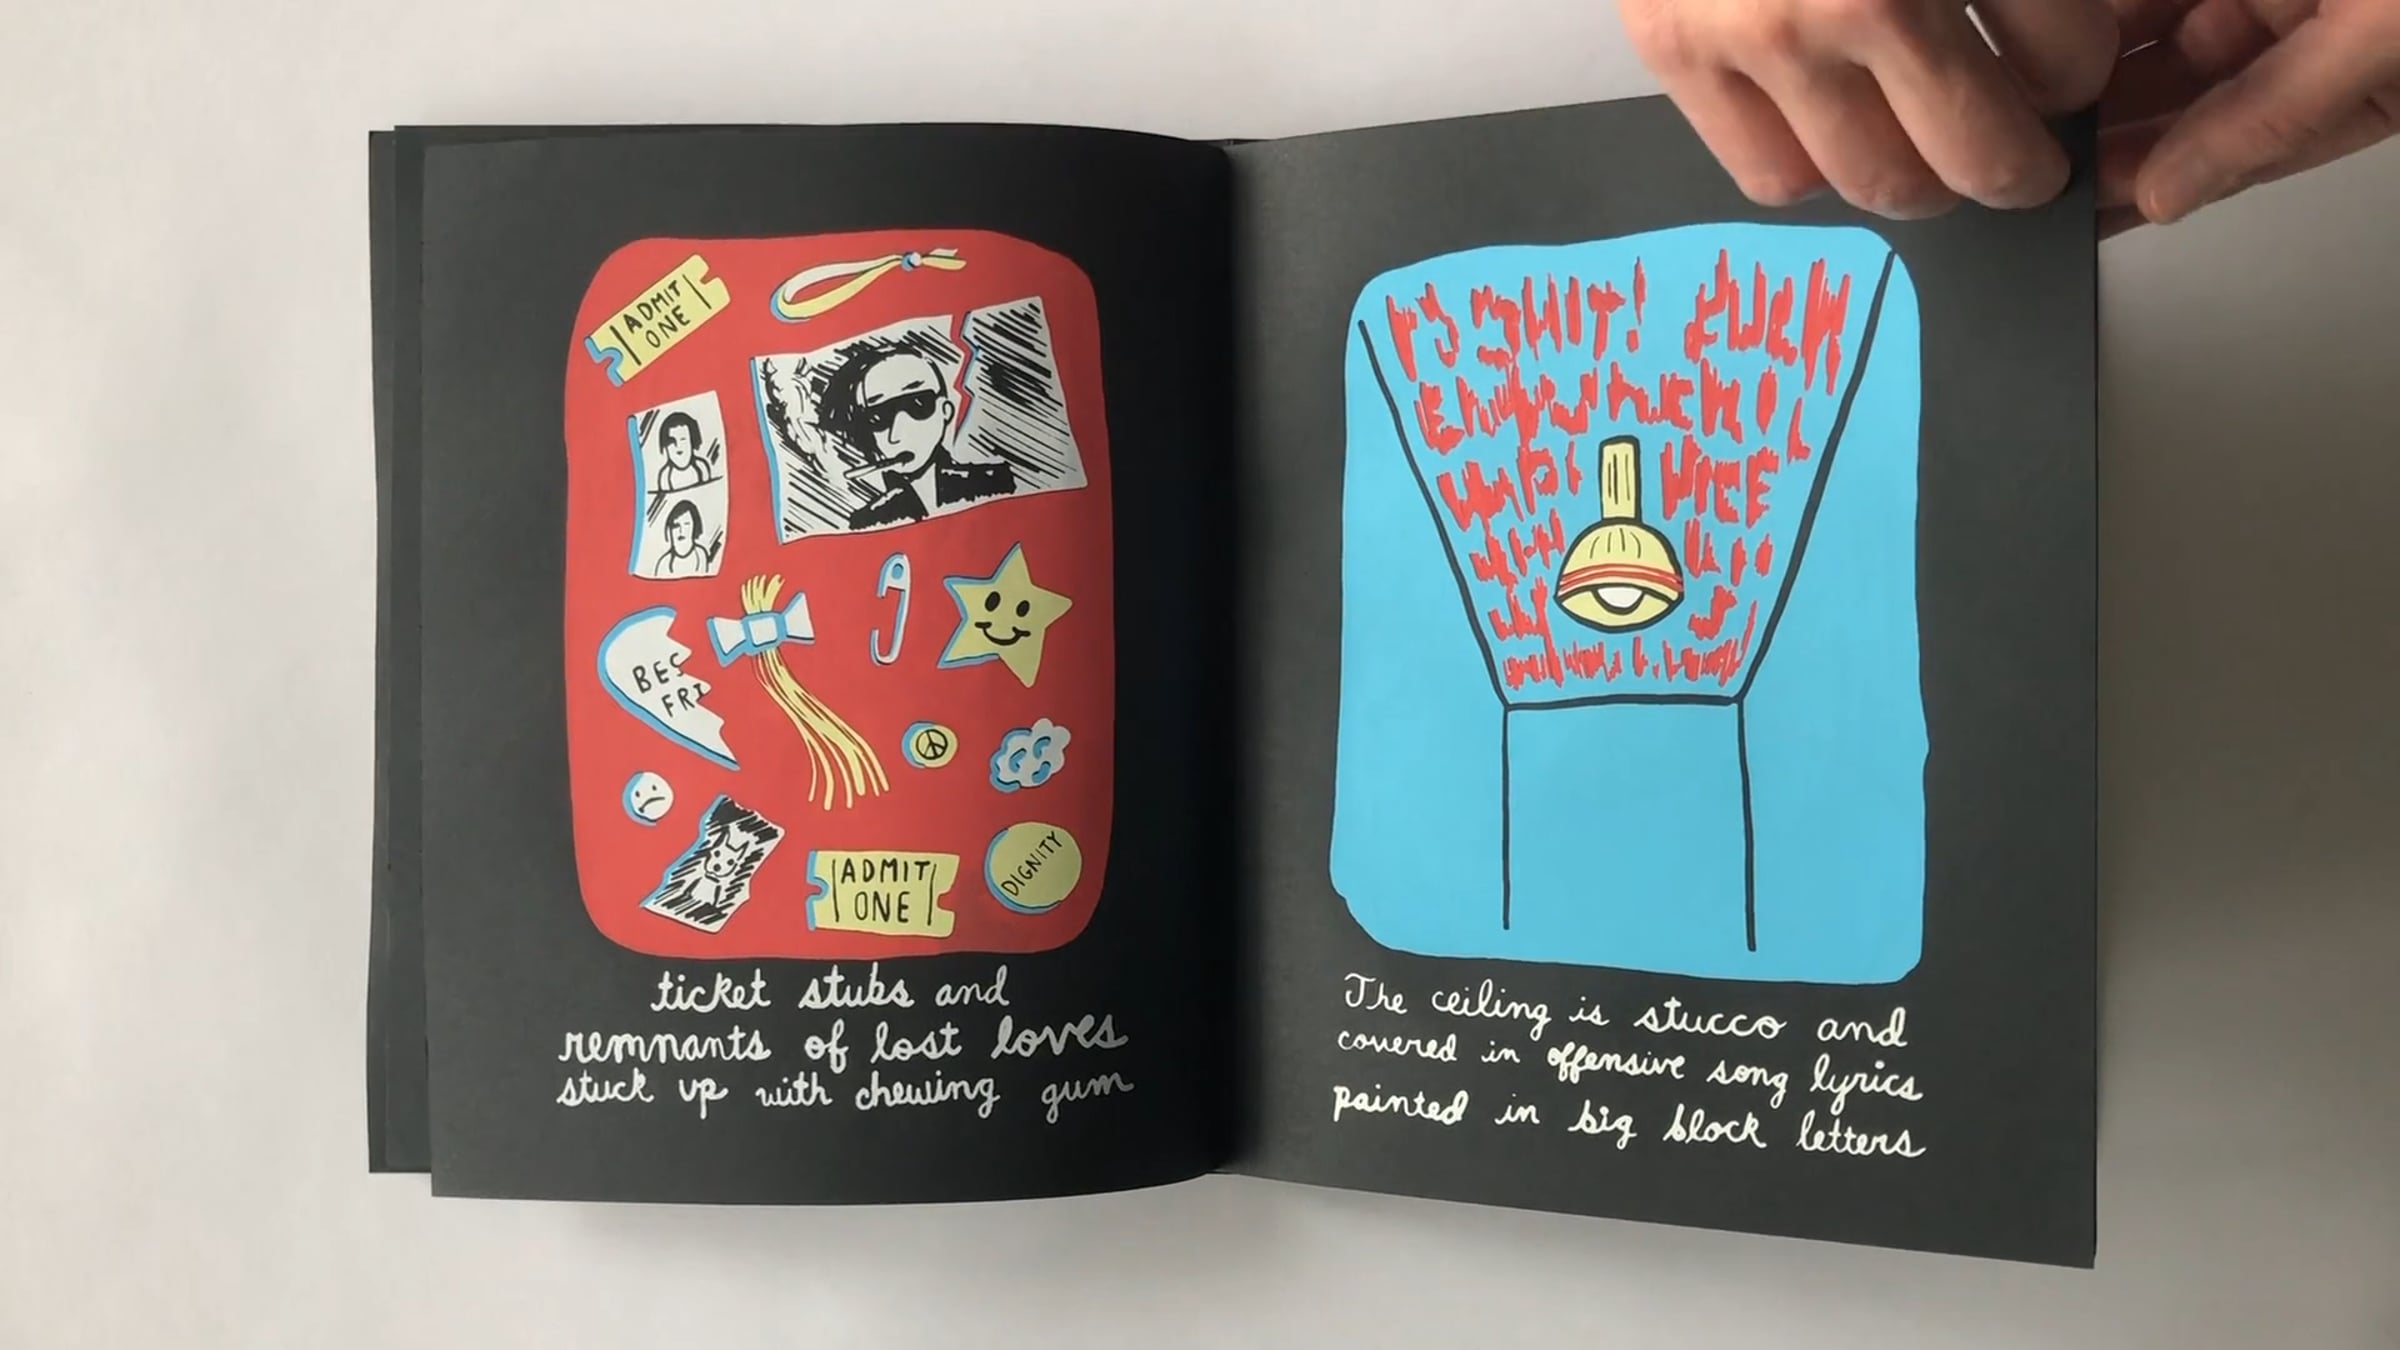 ADMIT
ONE
BES
FRI
ADMIT
ONE
DIGNITY
ticket stubs and
remnants of lost loves
stuck up with chewing gum
The ceiling is stucco and
covered in offensive song lyrics
painted in big block letters